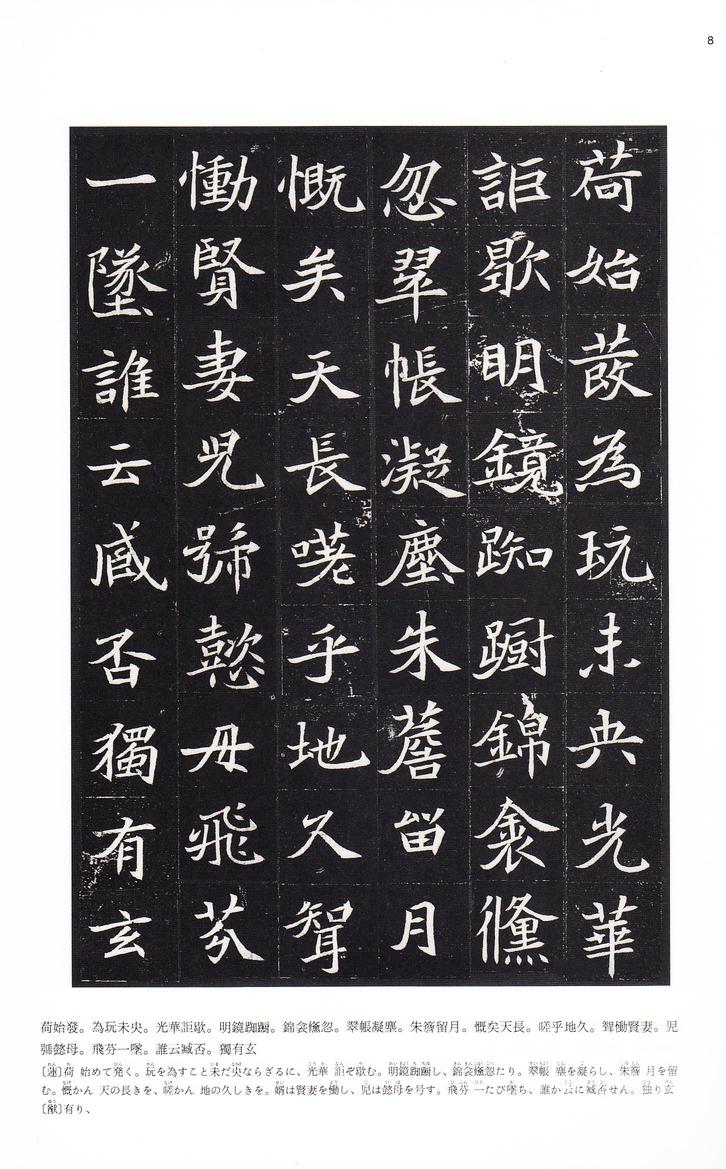 8
荷始葭為玩未央光華
詎歇明鏡踟躕錦衾儵
忽翠帳凝塵朱簷留月
慨矣天長嗟乎地久聟
慟賢妻兒號懿母飛芬
一墜誰云臧否獨有玄
荷始發。為玩未央。光華詎歇。明鏡踟躕。錦衾儵忽。翠帳凝塵。朱簷留月。慨矣天長。嗟乎地久。聟慟賢妻。児
號懿母。飛芬一墜。誰云臧否。獨有玄
〔蓮〕荷 始めて発く。玩を為すこと未だ央ならざるに、光華 詎ぞ歇む。明鏡踟躕し、錦衾儵忽たり。翠帳 塵を凝らし、朱簷 月を留
む。慨かん 天の長きを、嗟かん 地の久しきを。婿は賢妻を慟し、児は懿母を号す。飛芬 一たび墜ち、誰か云に臧否せん。独り玄
〔猷〕有り、